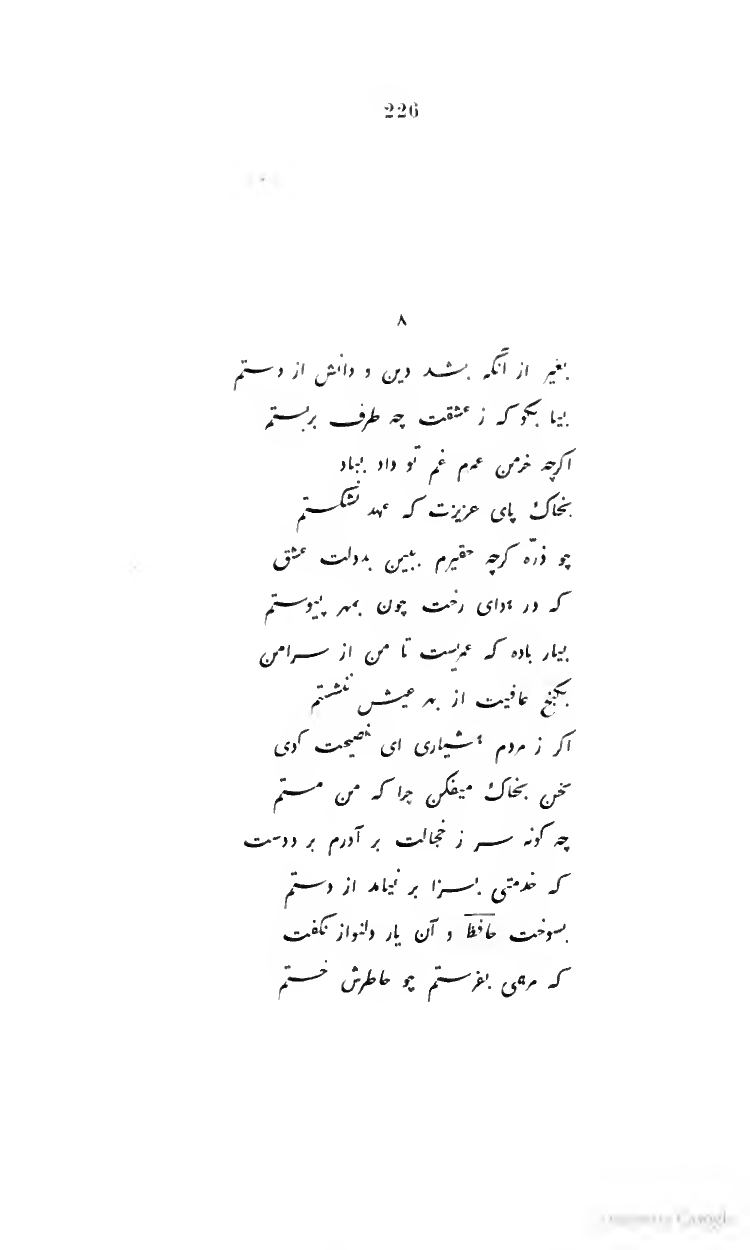 226
۸
بغیر از آنکه بشد دین و دانش از دستم
بیا بکو که ز عشقت چه طرف بربستم
اکرچه خرمن عمرم غم تو داد بباد
بخاک پای عزیزت که عهد نشکستم
چو ذرّه کرچه حقیرم ببین بدولت عشق
که در هوای رخت چون بمهر پیوستم
بیار باده که عمریست تا من از سر امن
بکنج عافیت از بهر عیش ننشستم
اکر ز مردم هشیاری ای نصیحت کوی
سخن بخاک میفکن چرا که من مستم
چه کونه سر ز خجالت بر آورم بر دوست
که خدمتی بسزا بر نیامد از دستم
بسوخت حافظ و آن یار دلنواز نکفت
که مرهمی بفرستم چو خاطرش خستم
Google